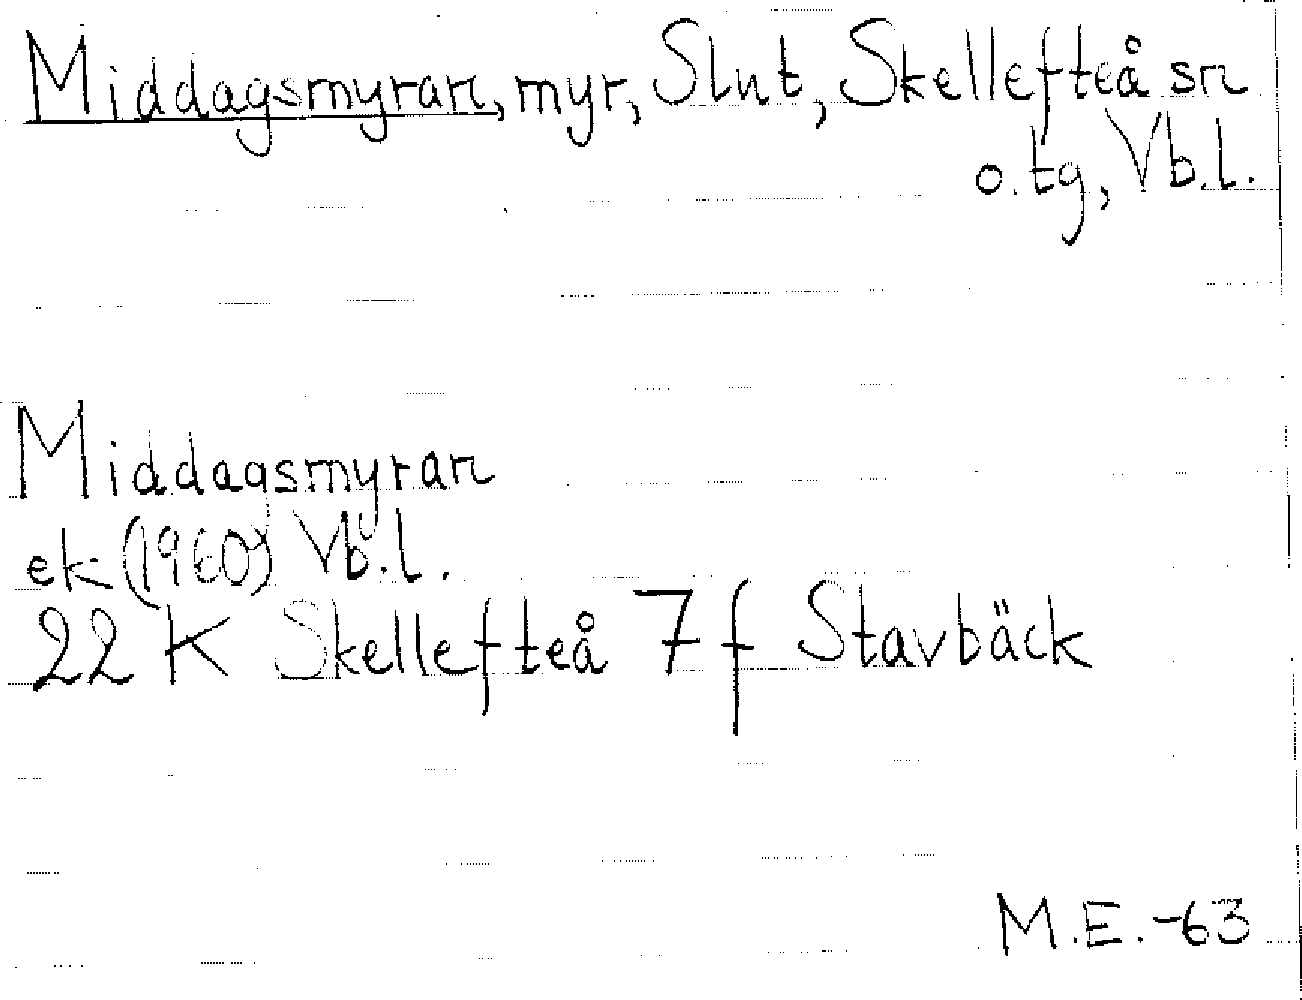 Middagsmyran, myr, Slnt, Skellefteå sn
o. tg, Vb.l.
Middagsmyran
ek (1960) Vb.l.
22 K Skellefteå 7 f Stavbäck
M.E. -63